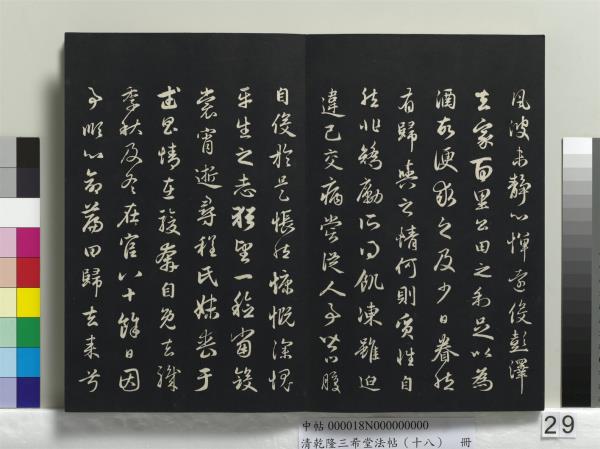 風波未靜心憚遠役彭澤
去家百里公田之利足以為
酒故便求之及少日眷然
有歸與之情何則質性自
然非矯勵所得飢凍雖迫
違己交病嘗從人事皆口腹
自役於是悵然慷慨深愧
平生之志猶望一稔當斂
裳宵逝尋程氏妹喪于
武昌情在駿奔自免去職
季秋及冬在官八十餘日因
事順心命篇曰歸去來兮
中帖 000018N000000000
清乾隆三希堂法帖(十八) 冊
29